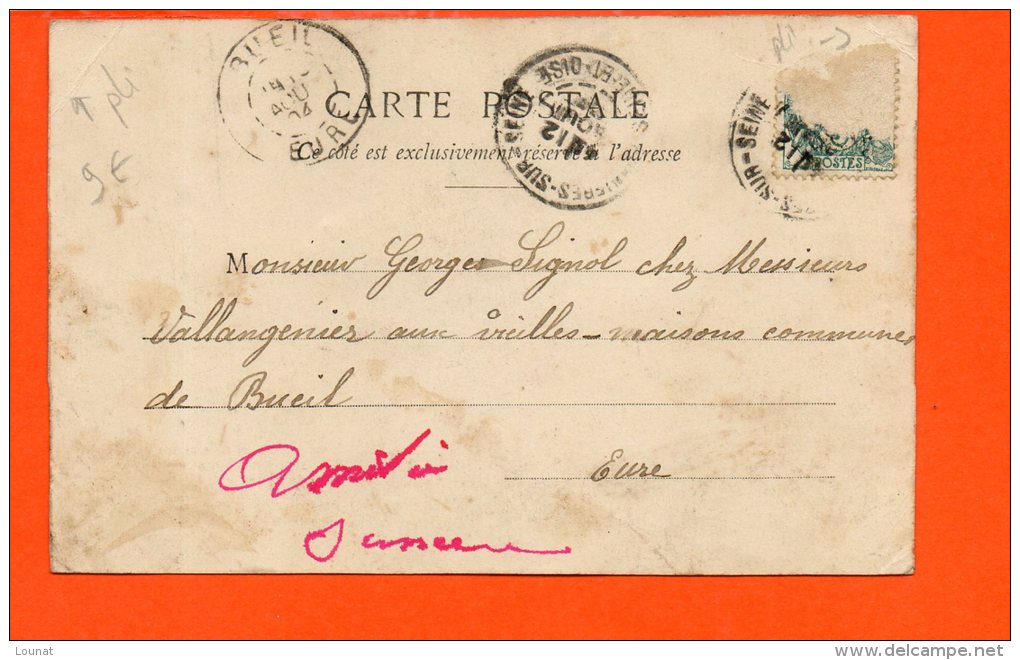 pli
pli
9 €
BUEIL
14
AOUT
04
EURE
SUR-SEINE
SEINE-ET-OISE
12
AOUT
SUR-SEINE
12
POSTES
CARTE POSTALE
Ce côté est exclusivement réservé à l'adresse
Monsieur Georges Signol chez Messieurs
Vallangenier aux vieilles-maisons commune
de Bueil
Eure
Amitié
Lounat
www.delcampe.net